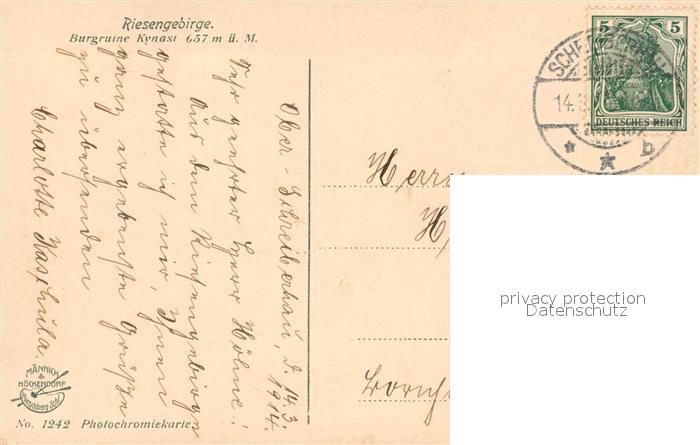 Riesengebirge.
Burgruine Kynast 657 m ü. M.
Ober-Schreiberhau, d. 14.3.
1914.
Sehr geehrter Herr Höhne!
Aus dem Riesengebirge
gestatte ich mir, Ihnen
ganz ergebenste Grüße
zu übersenden
Charlotte
MÄNNICH
&
HÖCKENDORF
Hirschberg Schl.
No. 1242 Photochromiekarte.
5 5
DEUTSCHES REICH
14.3
* * b
Herrn
H
privacy protection
Datenschutz